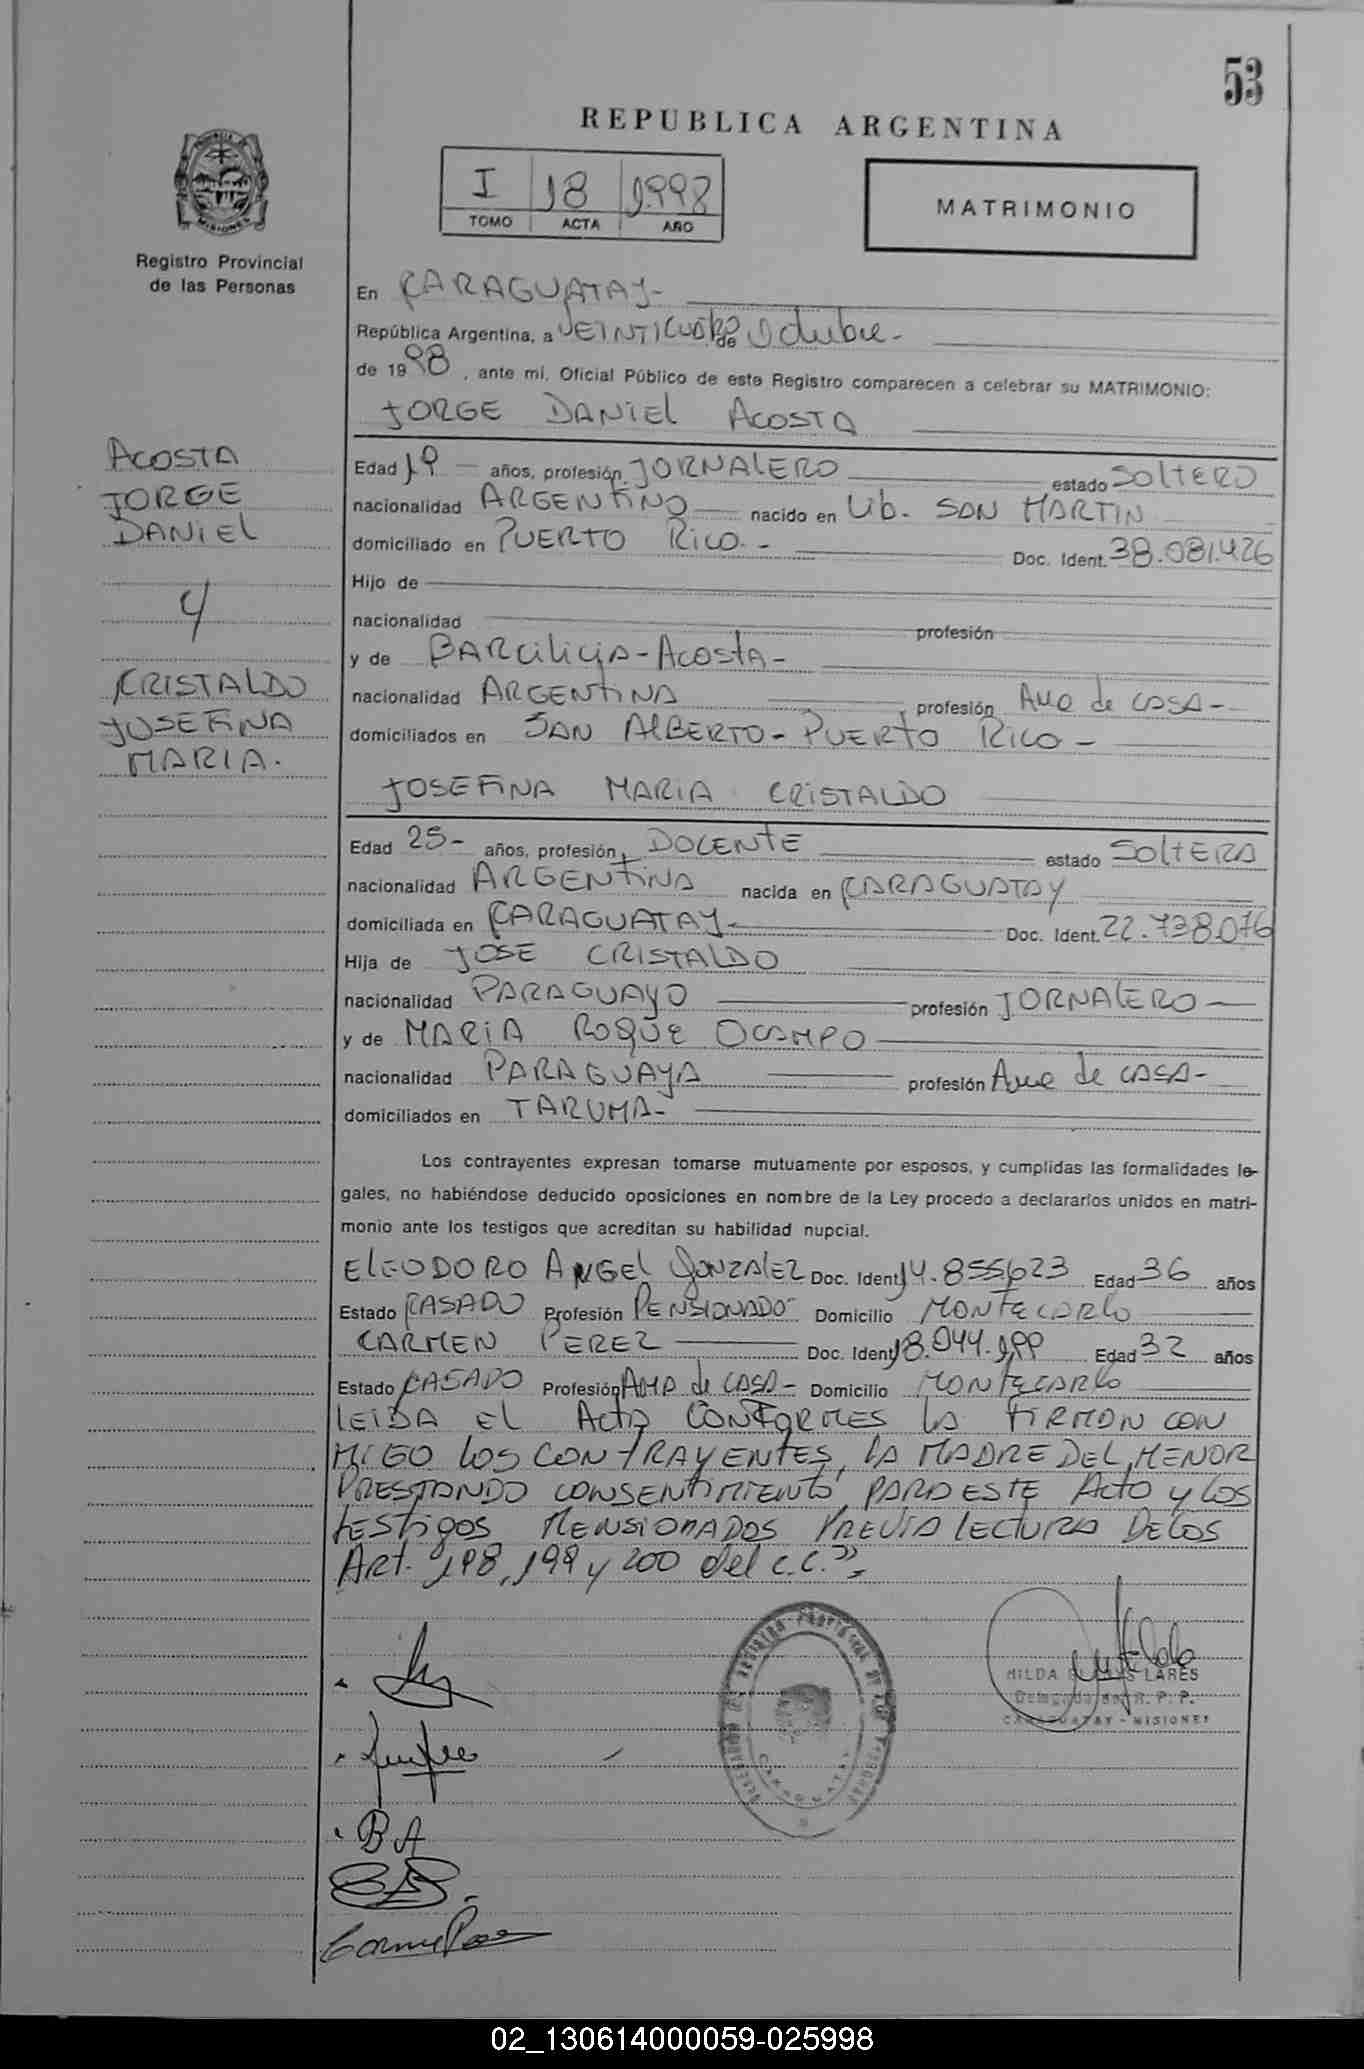 53
REPUBLICA ARGENTINA
I 18 1998
TOMO ACTA AÑO
MATRIMONIO
Registro Provincial
de las Personas
En CARAGUATAY-
República Argentina, a VEINTICUATRO de Octubre-
de 1998, ante mí, Oficial Público de este Registro comparecen a celebrar su MATRIMONIO:
JORGE DANIEL ACOSTA
ACOSTA
JORGE
DANIEL
y
CRISTALDO
JOSEFINA
MARIA.
Edad 19 años, profesión JORNALERO estado SOLTERO
nacionalidad ARGENTINO nacido en Lib. SAN MARTIN
domiciliado en PUERTO RICO.- Doc. Ident. 38.081.426
Hijo de
nacionalidad profesión
y de BARCILICIA-ACOSTA-
nacionalidad ARGENTINA profesión Ama de CASA-
domiciliados en SAN ALBERTO-PUERTO RICO-
JOSEFINA MARIA CRISTALDO
Edad 25- años, profesión DOCENTE estado SOLTERA
nacionalidad ARGENTINA nacida en CARAGUATAY
domiciliada en CARAGUATAY- Doc. Ident. 22.738.076
Hija de JOSE CRISTALDO
nacionalidad PARAGUAYO profesión JORNALERO
y de MARIA ROQUE OCAMPO
nacionalidad PARAGUAYA profesión Ama de CASA-
domiciliados en TARUMA-
Los contrayentes expresan tomarse mutuamente por esposos, y cumplidas las formalidades le-
gales, no habiéndose deducido oposiciones en nombre de la Ley procedo a declararlos unidos en matri-
monio ante los testigos que acreditan su habilidad nupcial.
ELEODORO ANGEL GONZALEZ Doc. Ident. 14.855623 Edad 36 años
Estado CASADO Profesión PENSIONADO- Domicilio MONTECARLO
CARMEN PEREZ Doc. Ident. 18.044.199 Edad 32 años
Estado CASADO Profesión AMA de CASA- Domicilio MONTECARLO
LEIDA EL ACTA CONFORMES LA FIRMAN CON
MIGO LOS CONTRAYENTES, LA MADRE DEL MENOR
PRESTANDO CONSENTIMIENTO PARA ESTE ACTO Y LOS
TESTIGOS MENSIONADOS PREVIA LECTURA DE LOS
Art. 198, 199 y 200 del c.c.",
BA
HILDA GLADYS LARES
Delegada del R. P. P.
CARAGUATAY - MISIONES
CARAGUATAY
02_130614000059-025998